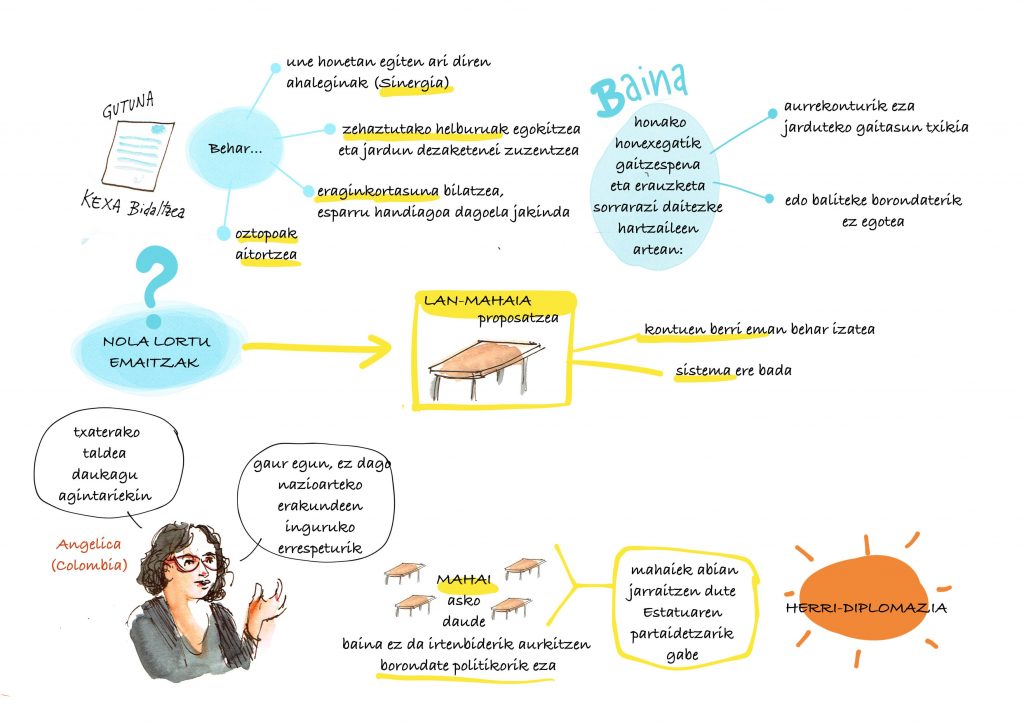 GUTUNA
KEXA Bidaltzea
Behar...
une honetan egiten ari diren
ahaleginak (Sinergia)
zehaztutako helburuak egokitzea
eta jardun dezaketenei zuzentzea
eraginkortasuna bilatzea,
esparru handiagoa dagoela jakinda
oztopoak
aitortzea
Baina
honako
honexegatik
gaitzespena
eta erauzketa
sorrarazi daitezke
hartzaileen
artean:
aurrekonturik eza
jarduteko gaitasun txikia
edo baliteke borondaterik
ez egotea
?
NOLA LORTU
EMAITZAK
LAN-MAHAIA
proposatzea
kontuen berri eman behar izatea
sistema ere bada
txaterako
taldea
daukagu
agintariekin
gaur egun, ez dago
nazioarteko
erakundeen
inguruko
errespeturik
Angelica
(Colombia)
MAHAI
asko
daude
baina ez da irtenbiderik aurkitzen
borondate politikorik eza
mahaiek abian
jarraitzen dute
Estatuaren
partaidetzarik
gabe
HERRI-DIPLOMAZIA